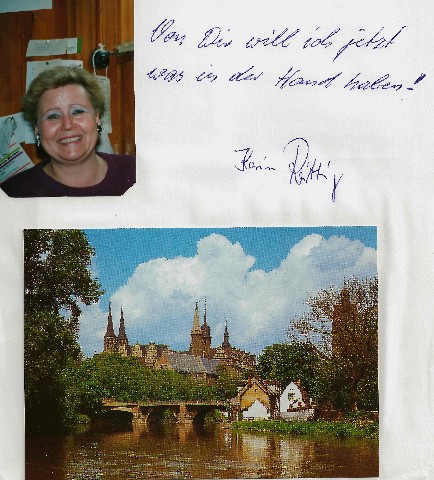 Von Dir will ich jetzt
was in der Hand haben!
Karin Rättig